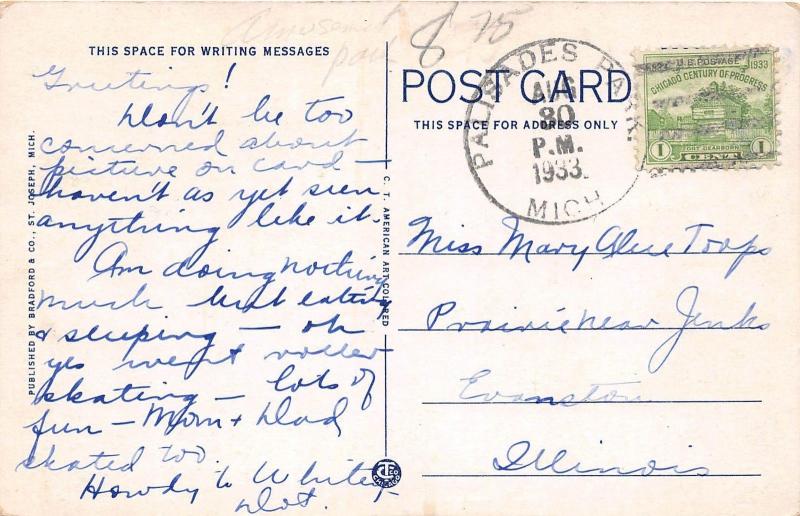 Amusement
park
8-75
THIS SPACE FOR WRITING MESSAGES
Greetings!
Don't be too
concerned about
picture on card –
haven't as yet seen
anything like it.
Am doing nothing
much but eating
& sleeping – oh
yes went roller
skating – lots of
fun – Mom + Dad
skated too.
Howdy to Whitey
Dot.
PUBLISHED BY BRADFORD & CO., ST. JOSEPH, MICH.
C. T. AMERICAN ART COLORED
CHICAGO
POST CARD
THIS SPACE FOR ADDRESS ONLY
PALISADES PARK.
AUG
30
P.M.
1933.
MICH
U.S. POSTAGE
1933
CHICAGO CENTURY OF PROGRESS
FORT DEARBORN
1 CENT 1
Miss Mary Alice Toops
Prairie near Jenks
Evanston
Illinois